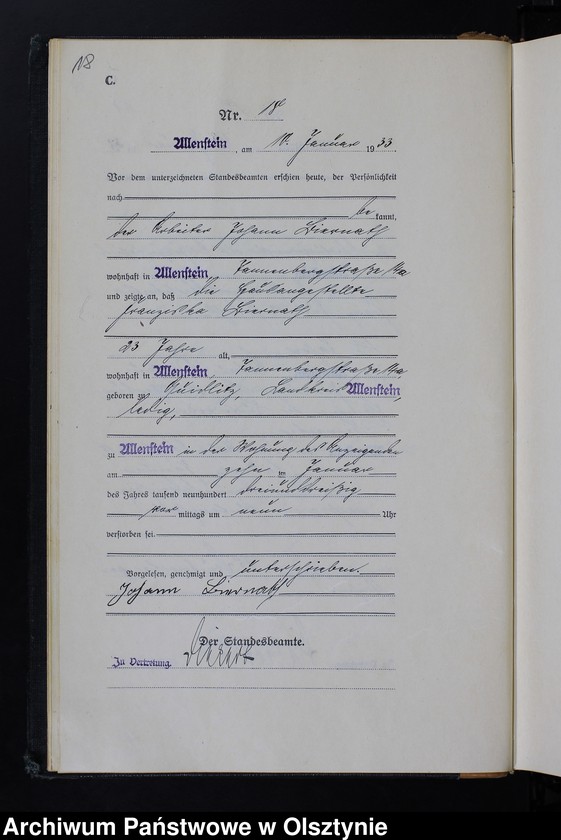 18
C.
Nr. 18
Allenstein, am 10. Januar 1933.
Vor dem unterzeichneten Standesbeamten erschien heute, der Persönlichkeit
nach
bekannt,
der Arbeiter Johann Biernath
wohnhaft in Allenstein, Tannenbergstraße
und zeigte an, daß die Hausangestellte
Franziska Biernath
23 Jahre alt,
wohnhaft in Allenstein, Tannenbergstraße
geboren zu Quidlitz, Landkreis Allenstein,
ledig,
zu Allenstein in der Wohnung des Anzeigenden
am zehn ten Januar
des Jahres tausend neunhundert dreiunddreißig
vor mittags um neun Uhr
verstorben sei.
Vorgelesen, genehmigt und unterschrieben.
Johann Biernath
Der Standesbeamte.
In Vertretung.
Archiwum Państwowe w Olsztynie